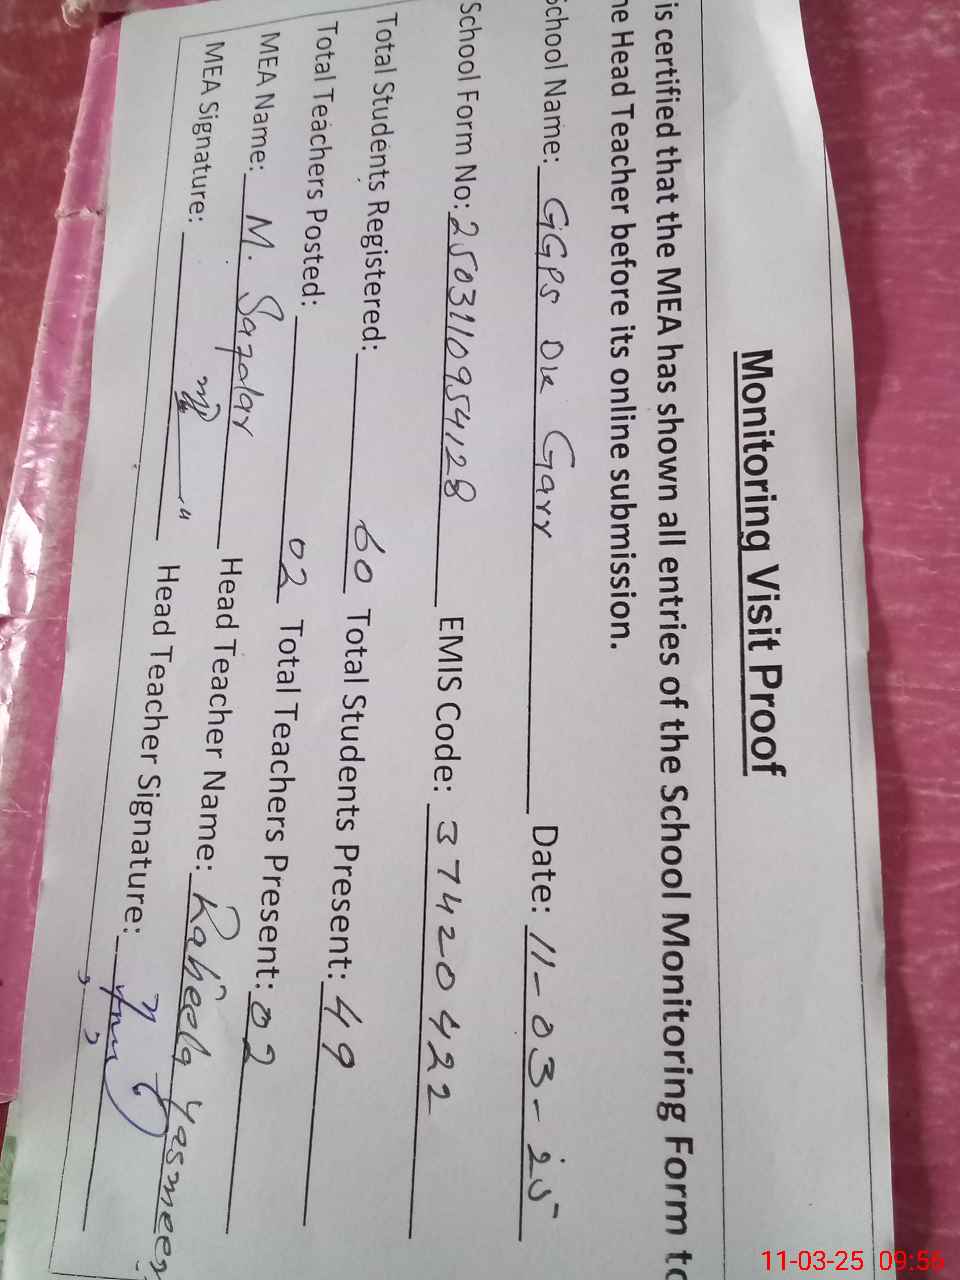 Monitoring Visit Proof
is certified that the MEA has shown all entries of the School Monitoring Form to
he Head Teacher before its online submission.
School Name: GGPS Ok Garr Date: 11-03-25
School Form No: 2503110954128 EMIS Code: 37420422
Total Students Registered: 60 Total Students Present: 49
Total Teachers Posted: 02 Total Teachers Present: 02
MEA Name: M. Safdar Head Teacher Name: Raheela Yasmeen
MEA Signature: Head Teacher Signature:
11-03-25 09:56